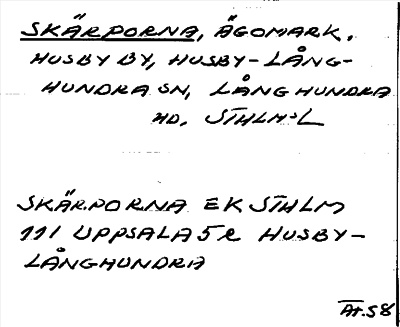 SKÄRPORNA, ÄGOMARK,
HUSBY BY, HUSBY-LÅNG-
HUNDRA SN, LÅNGHUNDRA
HD, STHLM:L
SKÄRPORNA EK STHLM
111 UPPSALA 5R HUSBY-
LÅNGHUNDRA
ÅT.58